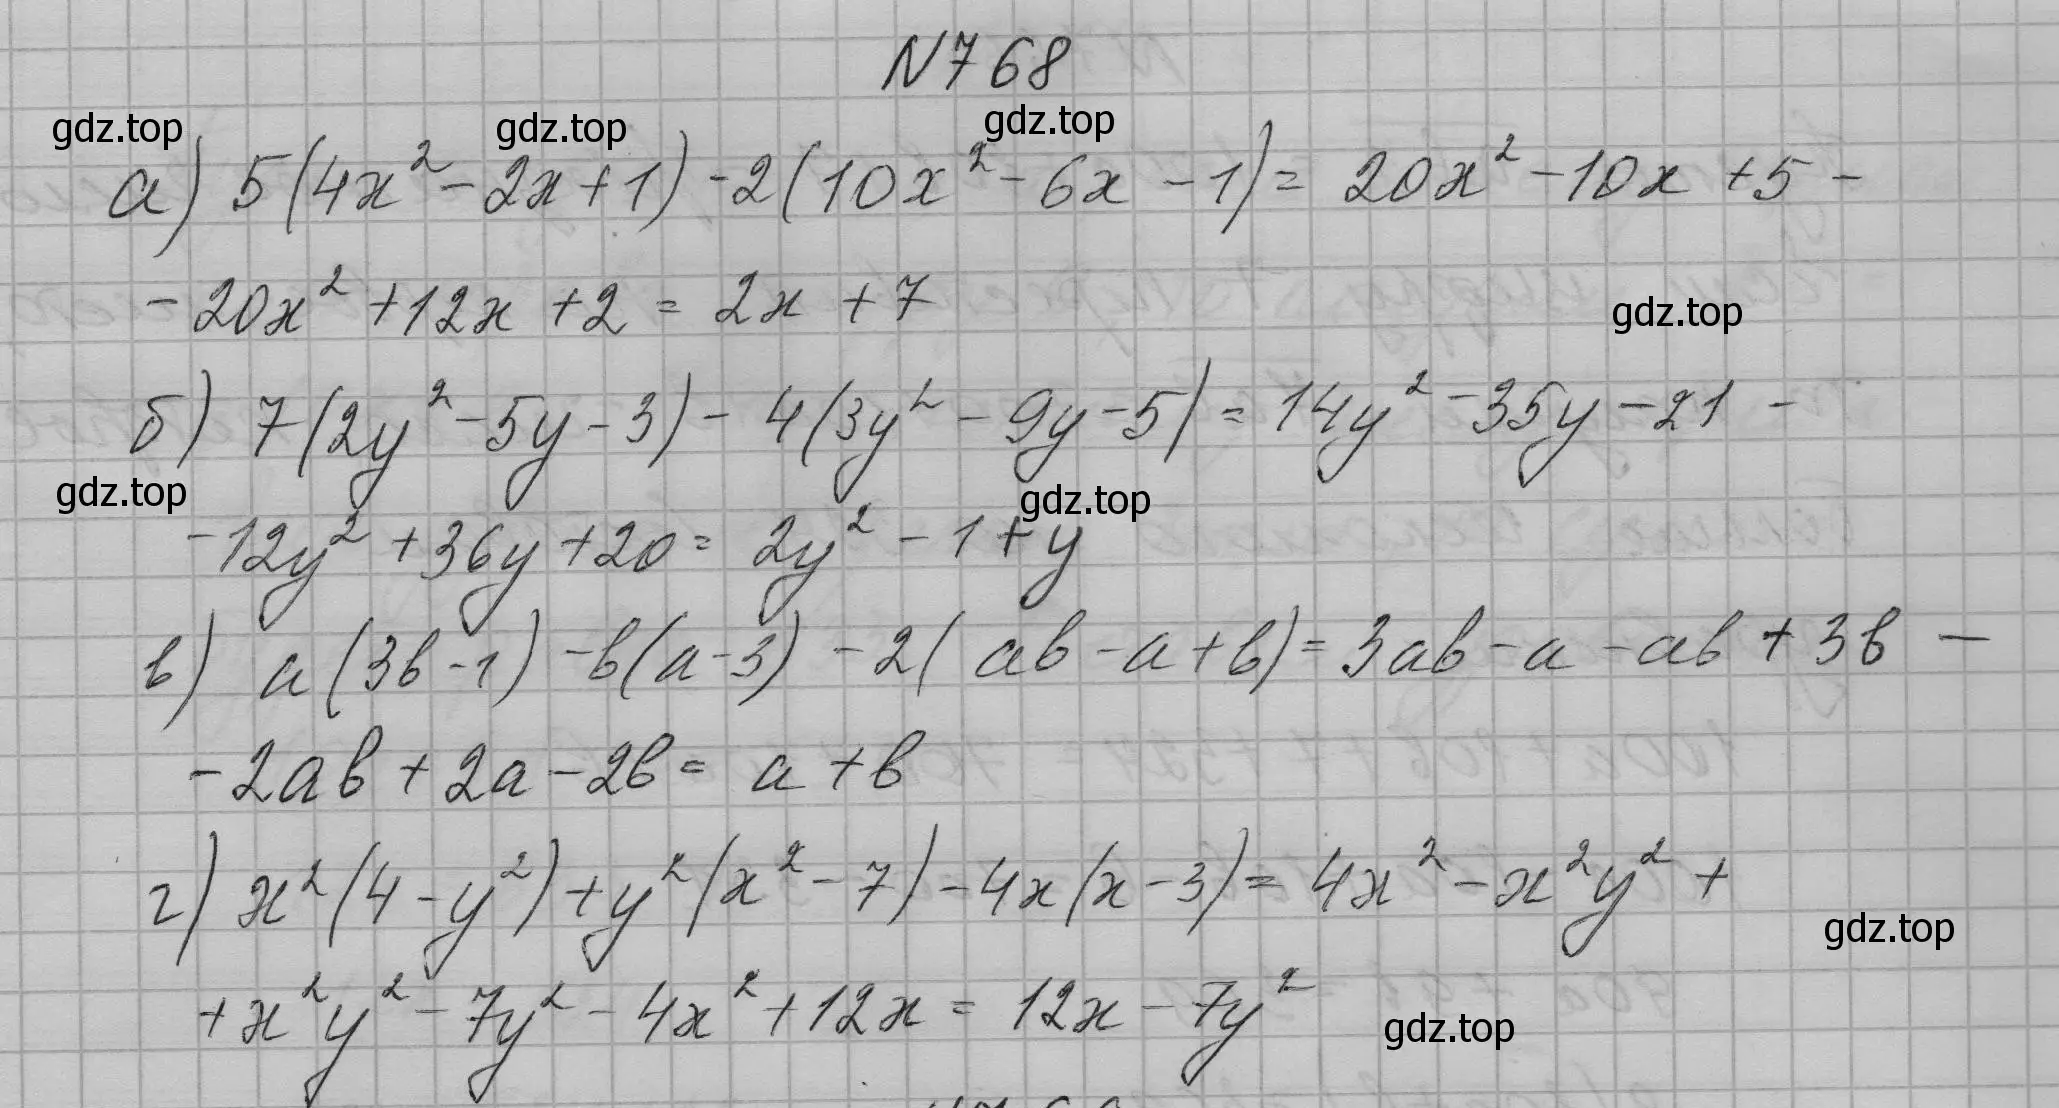 N768
gdz.top gdz.top gdz.top
а) 5(4x² - 2x + 1) - 2(10x² - 6x - 1) = 20x² - 10x + 5 -
- 20x² + 12x + 2 = 2x + 7
gdz.top
б) 7(2y² - 5y - 3) - 4(3y² - 9y - 5) = 14y² - 35y - 21 -
gdz.top gdz.top
- 12y² + 36y + 20 = 2y² - 1 + y
в) a(3b - 1) - b(a - 3) - 2(ab - a + b) = 3ab - a - ab + 3b -
- 2ab + 2a - 2b = a + b
г) x²(4 - y²) + y²(x² - 7) - 4x(x - 3) = 4x² - x²y² +
gdz.top
+ x²y² - 7y² - 4x² + 12x = 12x - 7y²
gdz.top